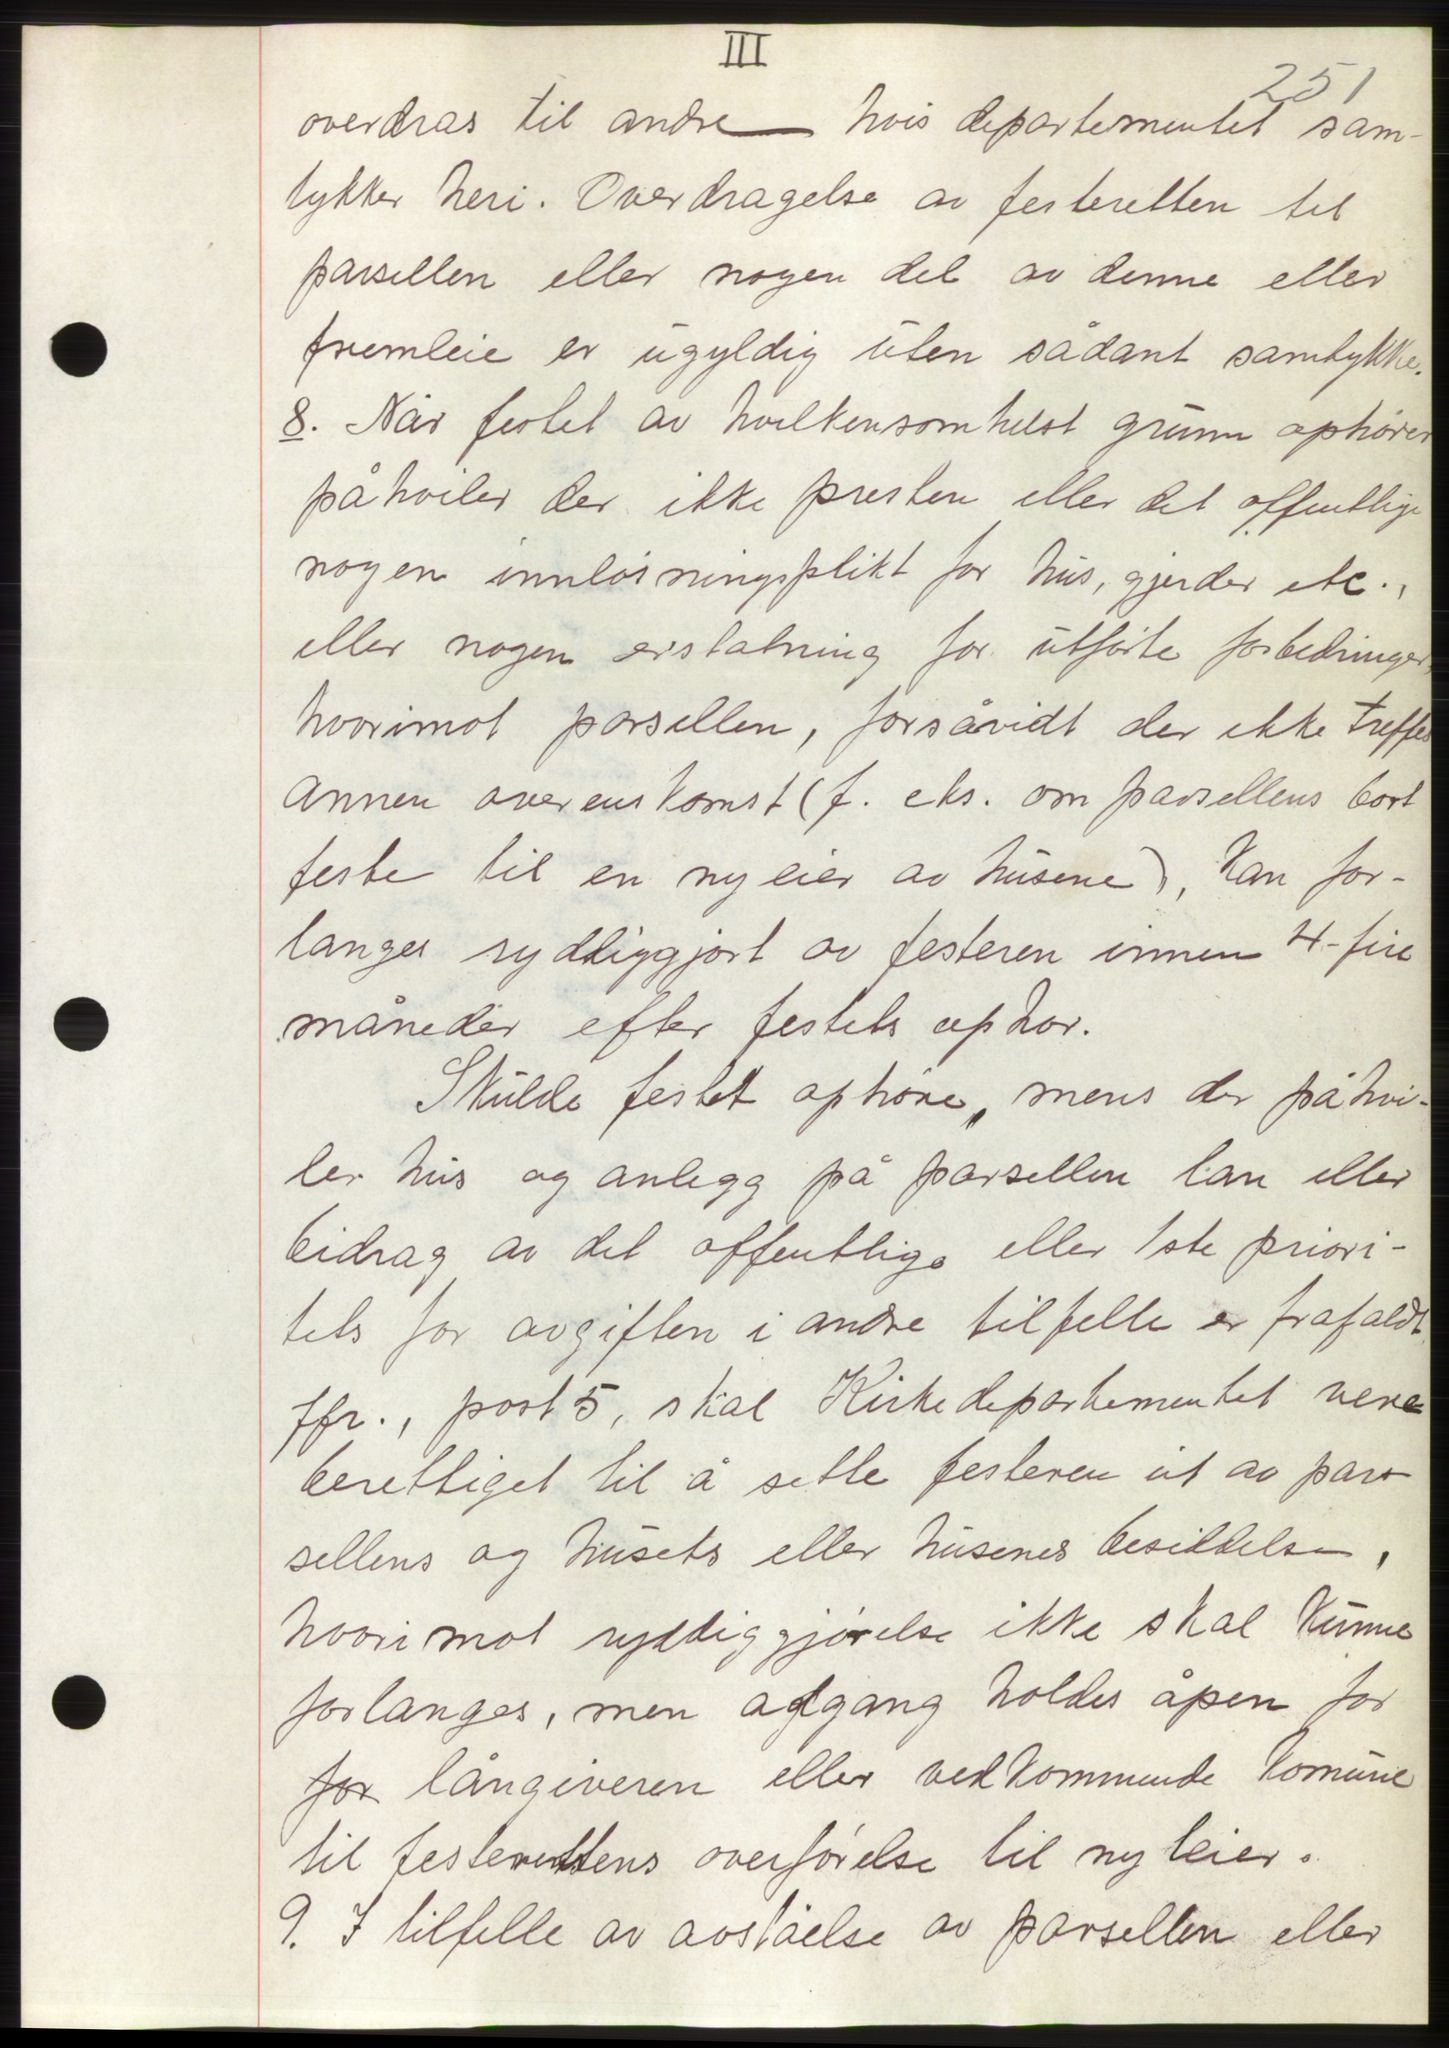 III
251
overdras til andre — hvis departementet sam-
tykker heri. Overdragelse av festeretten til
parsellen eller nogen del av denne eller
fremleie er ugyldig uten sådant samtykke.
8. Når festet av hvilkensomhelst grunn ophører
påhviler der ikke presten eller det offentlige
nogen innløsningsplikt for hus, gjerder etc.,
eller nogen erstatning for utførte forbedringer,
hvorimot parsellen, forsåvidt der ikke treffes
annen overenskomst (f. eks. om parsellens bort
feste til en ny eier av husene), kan for-
langes ryddiggjort av festeren innen 4-fire
måneder efter festets ophør.
Skulde festet ophøre, mens der påhvi-
ler hus og anlegg på parsellen lån eller
bidrag av det offentlige eller 1ste priori-
tets for avgiften i andre tilfelle er frafaldt,
jfr., post 5, skal Kirkedepartementet være
berettiget til å sette festeren ut av par-
sellens og husets eller husenes besiddelse,
hvorimot ryddiggjørelse ikke skal kunne
forlanges, men adgang holdes åpen for
for långiveren eller vedkommende komune
til festerettens overførelse til ny leier.
9. I tilfelle av avståelse av parsellen eller